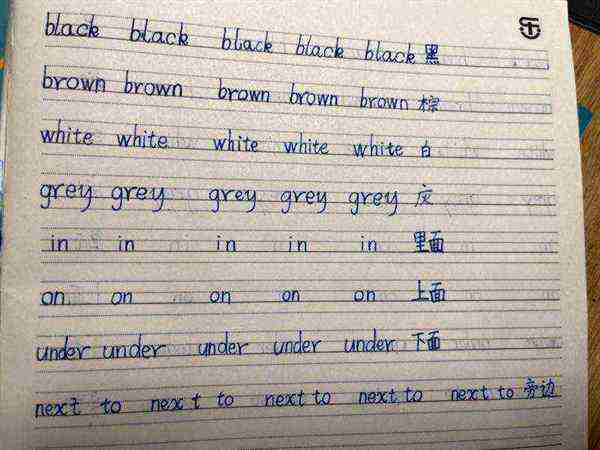 black black black black black 黑
brown brown brown brown brown 棕
white white white white white 白
grey grey grey grey grey 灰
in in in in in 里面
on on on on on 上面
under under under under under 下面
next to next to next to next to next to 旁边